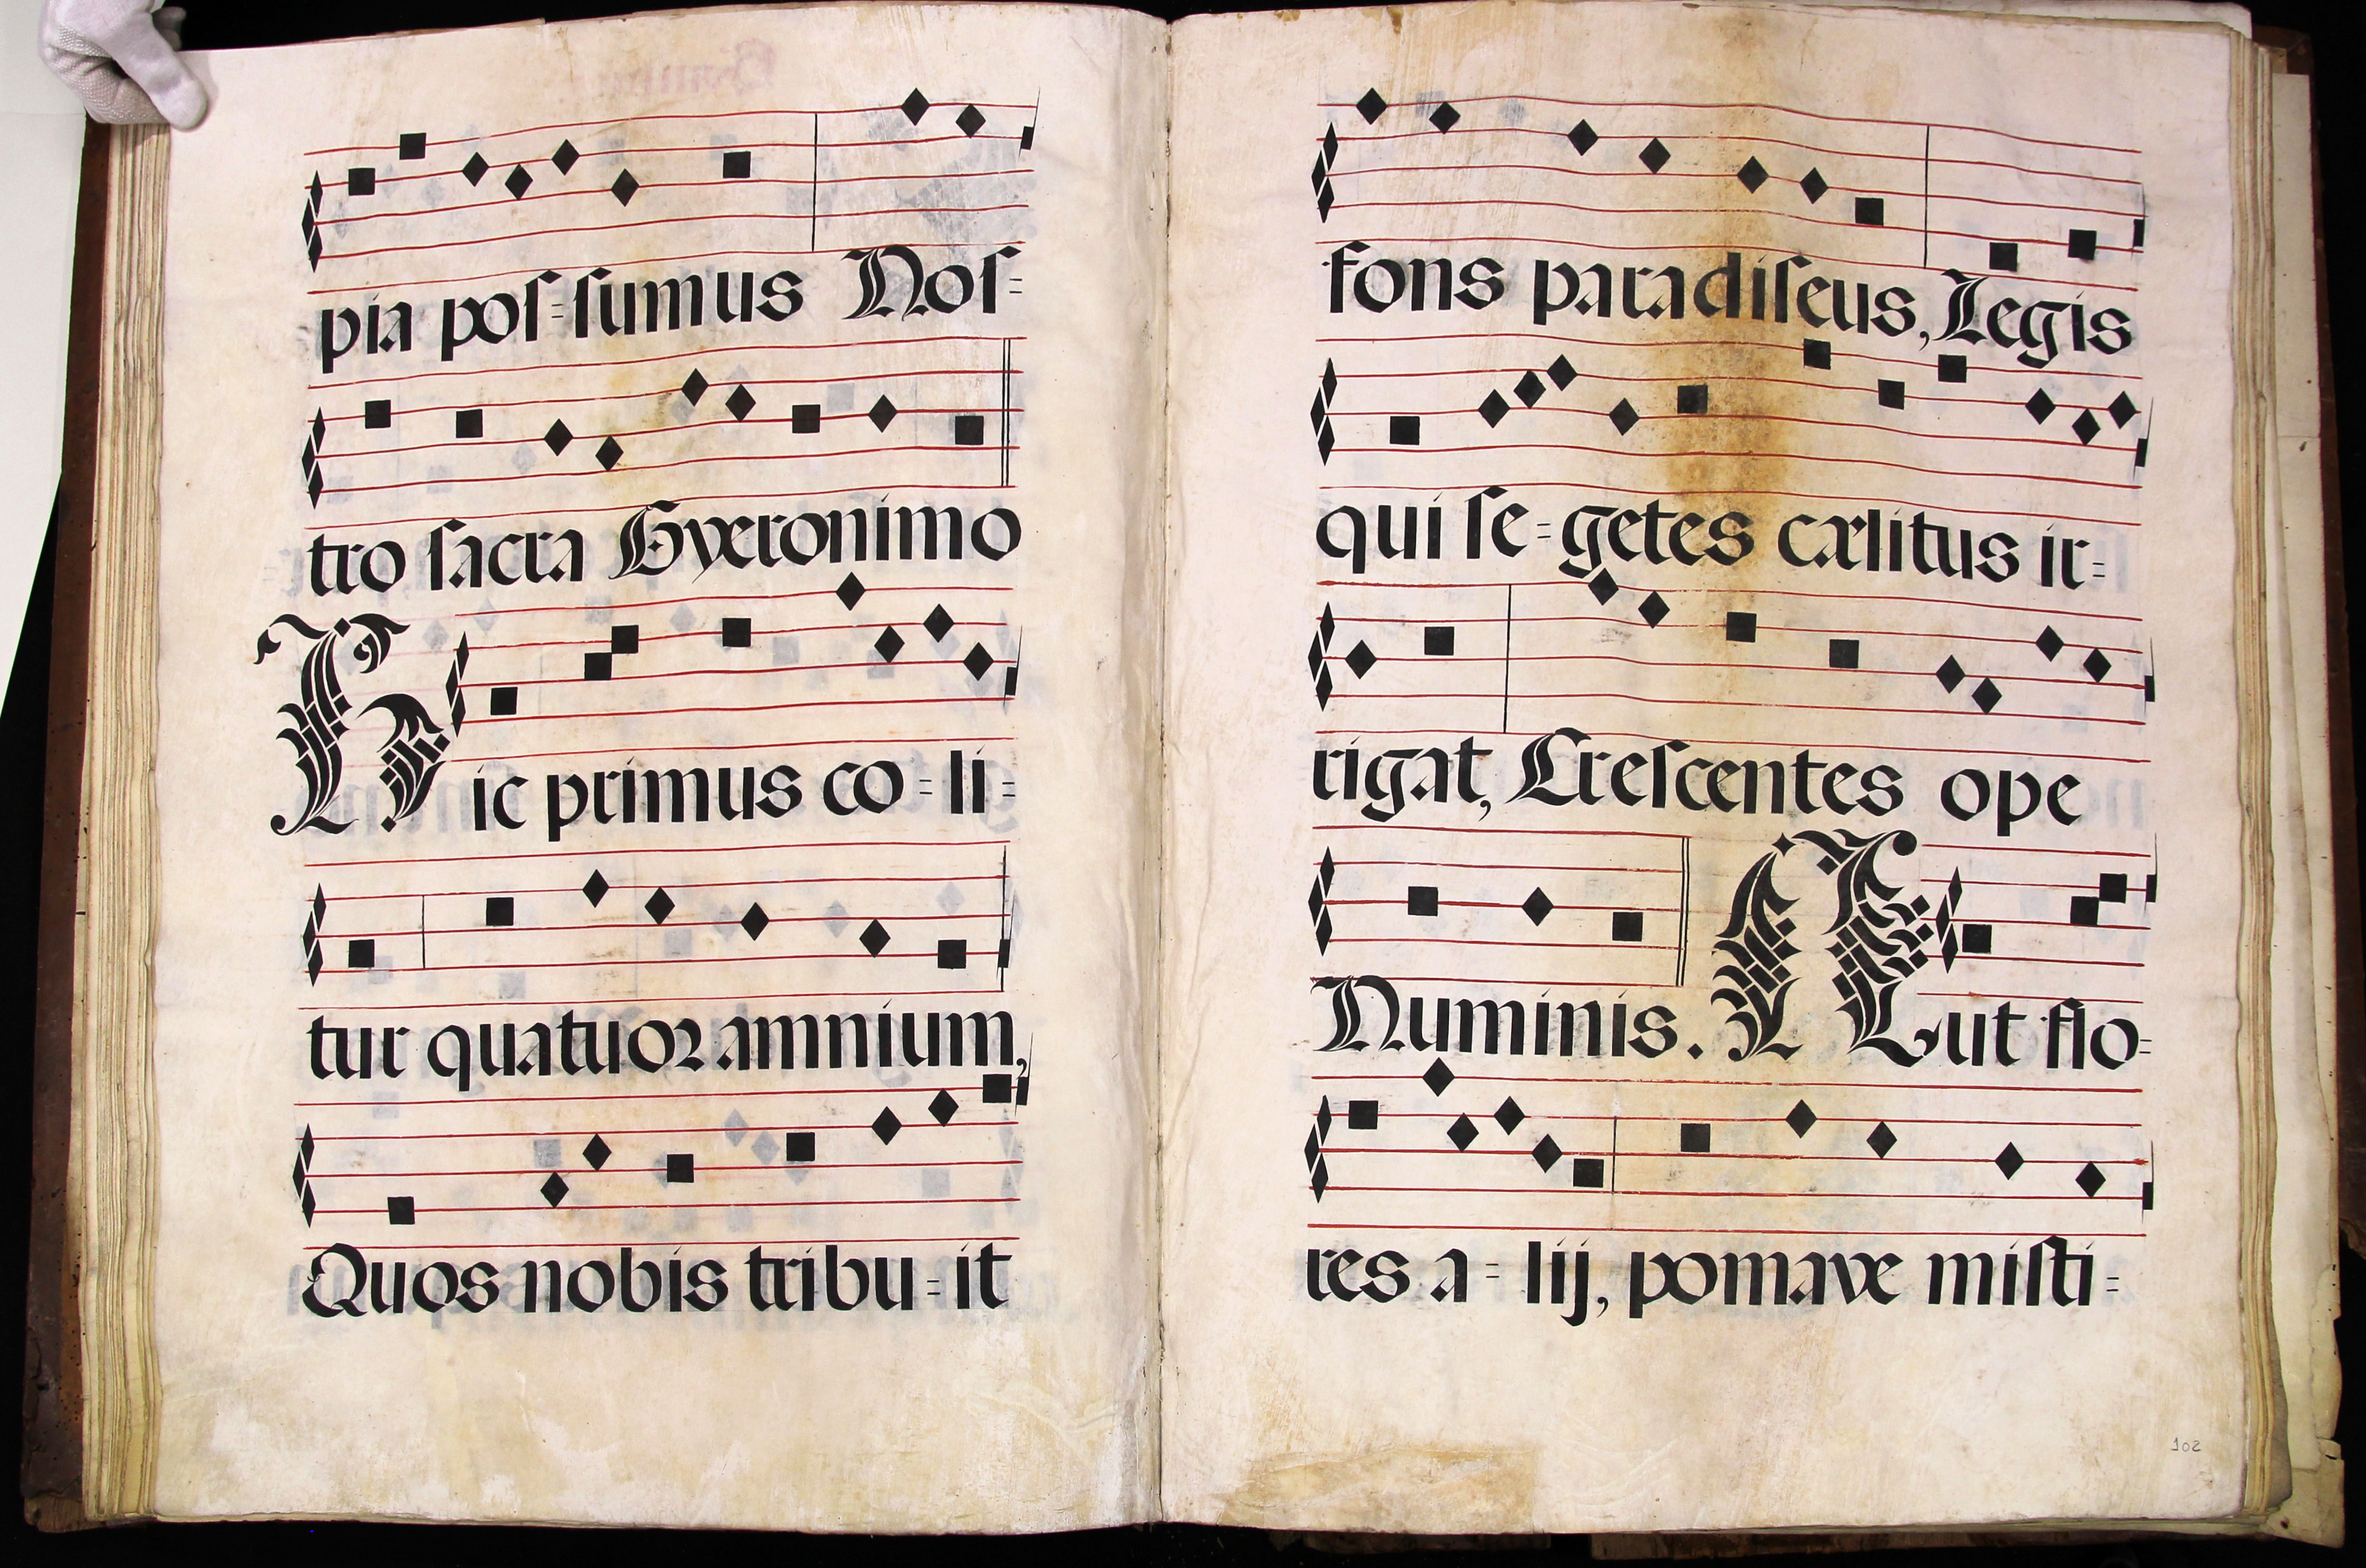 pia poſ=ſumus Noſ=
tro ſacra Gyeronimo
Hic primus co=li=
tur quatuoꝛ amnium,
Quos nobis tribu=it
fons paradiſeus, Legis
qui ſe=getes cælitus ir=
rigat, Creſcentes ope
Numinis. Aut flo=
res a=lij, pomave miſti=
102